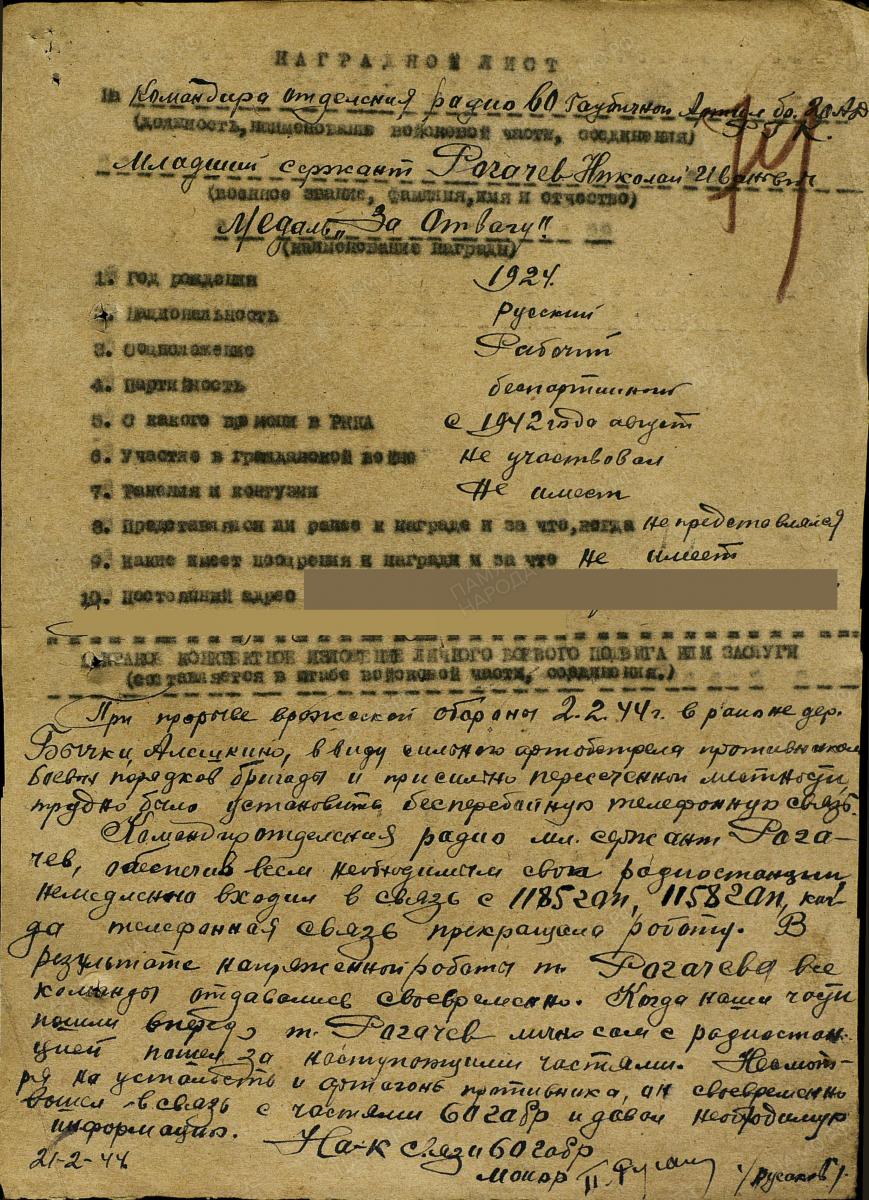 НАГРАДНОЙ ЛИСТ
На Командира отделения радио 60 Гаубичной Артил. бр. 20 АД
РГК.
(должность, наименование войсковой части, соединения)
Младший сержант Рогачев Николай Иванович
(военное звание, фамилия, имя и отчество)
Медаль „За Отвагу"
(наименование награды)
1. Год рождения 1924.
2. Национальность Русский
3. Соцположение Рабочий
4. Партийность беспартийный
5. С какого времени в РККА с 1942 года август
6. Участие в гражданской войне Не участвовал
7. Ранения и контузии Не имеет
8. Представлялся ли ранее к награде и за что, когда не представлялся
9. Какие имеет поощрения и награды и за что Не имеет
10. Постоянный адрес
КРАТКОЕ КОНКРЕТНОЕ ИЗЛОЖЕНИЕ ЛИЧНОГО БОЕВОГО ПОДВИГА ИЛИ ЗАСЛУГИ
(составляется в штабе войсковой части, соединения.)
При прорыве вражеской обороны 2.2.44г. в районе дер.
Бычки, Алешкино, в виду сильного артобстрела противником
боевых порядков бригады и при сильно пересеченной местности,
трудно было установить бесперебойную телефонную связь.
Командир отделения радио мл. сержант Рога-
чев, обеспечив всем необходимым свои радиостанции
немедленно входил в связь с 1185 гап, 1158 гап, ког-
да телефонная связь прекращала работу. В
результате напряженной работы т. Рогачева все
команды отдавались своевременно. Когда наши части
пошли вперед, т. Рогачев лично сам с радиостан-
цией пошел за наступающими частями. Несмот-
ря на усталость и артогонь противника, он своевременно
вошел в связь с частями 60 габр и давал необходимую
информацию.
На-к связи 60 габр
21-2-44 Майор /Русаков/.